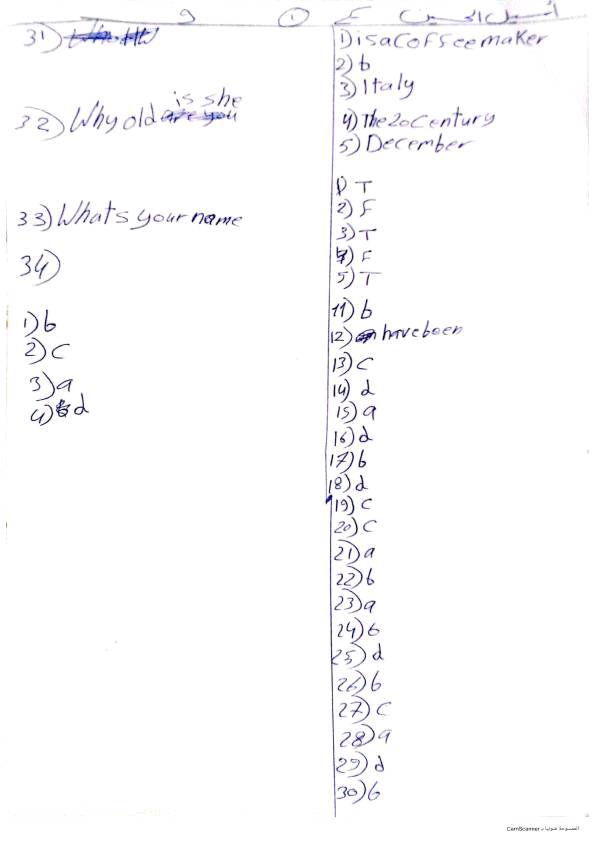 9 ①
1) is a Coffee maker
2) b
3) Italy
4) The 20 Century
5) December
1) T
2) F
3) T
4) F
5) T
11) b
12) have been
13) C
14) d
15) a
16) d
17) b
18) d
19) C
20) C
21) a
22) b
23) a
24) b
25) d
26) b
27) C
28) a
29) d
30) b
31)
is she
32) Why old are you
33) Whats your name
34)
1) b
2) C
3) a
4) d
CamScanner الممسوحة ضوئيا بـ